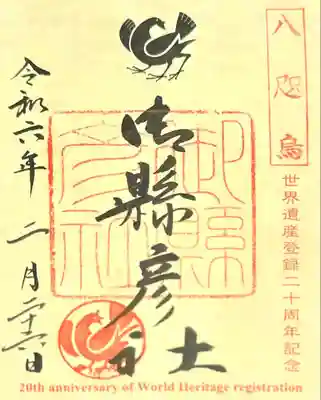 八咫烏
世界遺産登録二十周年記念
御縣彦社
令和六年 二月二十六日
御縣彦社
20th anniversary of World Heritage registration